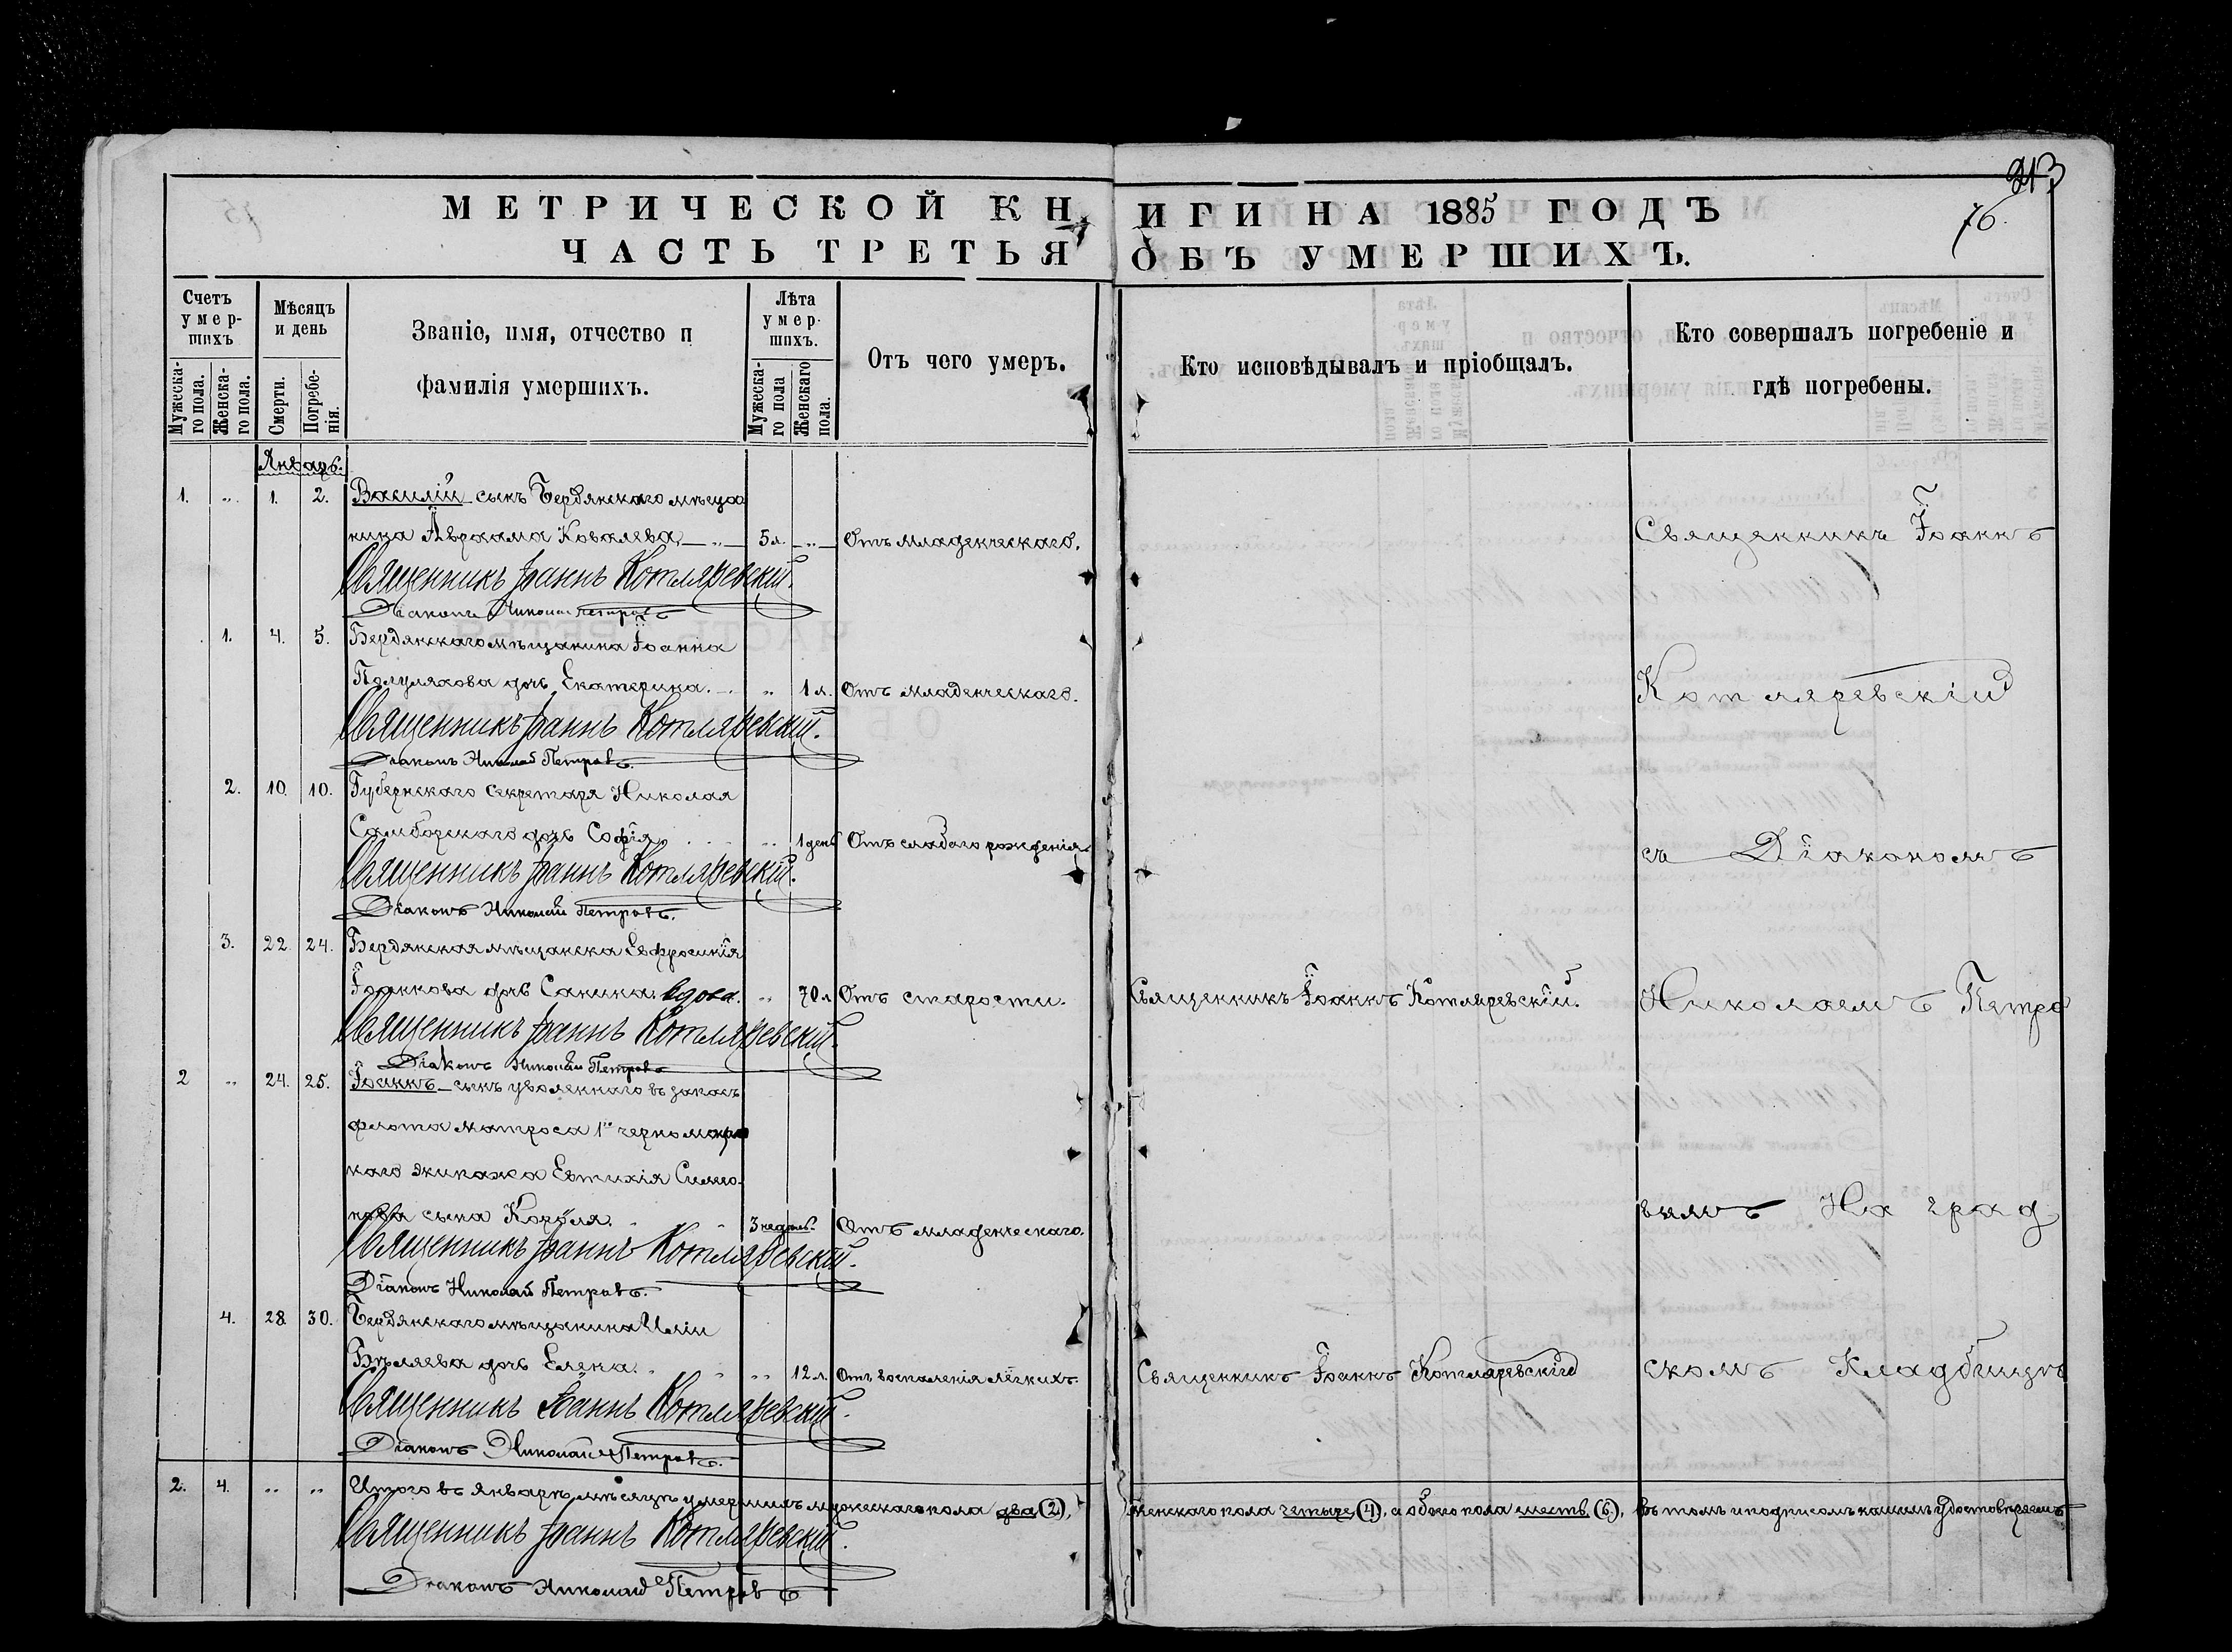 213
МЕТРИЧЕСКОЙ КНИГИ НА 1885 ГОДЪ
76.
ЧАСТЬ ТРЕТЬЯ ОБЪ УМЕРШИХЪ.
Счетъ умер-шихъ
Мужеска-го пола.
Женска-го пола.
Мѣсяцъ и день
Смерти.
Погребе-нія.
Званіе, имя, отчество и
фамилія умершихъ.
Лѣта умер-шихъ.
Мужеска-го пола
Женскаго пола.
Отъ чего умеръ.
Кто исповѣдывалъ и пріобщалъ.
Кто совершалъ погребеніе и
гдѣ погребены.
Январь.
1. „ 1. 2. Василій сынъ Бердянскаго мѣща
нина Авраама Ковалева 5 л. „ Отъ младенческаго.
Священникъ Іоаннъ Котляревскій.
Діаконъ Николай Петровъ
1. 4. 5. Бердянскаго мѣщанина Іоанна
Полуляхова дочь Екатерина. „ 1 л. Отъ младенческаго.
Священникъ Іоаннъ Котляревскій.
Діаконъ Николай Петровъ.
2. 10. 10. Губернскаго Секретаря Николая
Самборскаго дочь Софія „ 1 день Отъ слабаго рожденія
Священникъ Іоаннъ Котляревскій.
Діаконъ Николай Петровъ.
3. 22. 24. Бердянская мѣщанска Евфросинія
Іоаннова дочь Санина. вдова. „ 70 л. Отъ старости. Священникъ Іоаннъ Котляревскій.
Священникъ Іоаннъ Котляревскій.
Діаконъ Николай Петровъ
2 „ 24. 25. Іоаннъ сынъ уволеннаго въ запасъ
флота матроса 1го черноморс
каго экипажа Евтихія Симо-
нова сына Короля. 3 недѣль. Отъ младенческаго.
Священникъ Іоаннъ Котляревскій.
Діаконъ Николай Петровъ.
4. 28 30. Бердянскаго мѣщанина Иліи
Бѣляева дочь Елена. „ 12 л. Отъ воспаленія лёгкихъ. Священникъ Іоаннъ Котляревскій
Священникъ Іоаннъ Котляревскій.
Діаконъ Николай Петровъ.
Священникъ Іоаннъ
Котляревскій
съ Діакономъ
Николаемъ Петро
вымъ На град
скомъ Кладбищѣ
2. 4. „ „ Итого въ Январѣ мѣсяцѣ умершихъ мужескаго пола два (2), женскаго пола четыре (4), а обоего пола шесть (6), въ томъ и подписомъ нашимъ удостовѣряемъ
Священникъ Іоаннъ Котляревскій.
Діаконъ Николай Петровъ